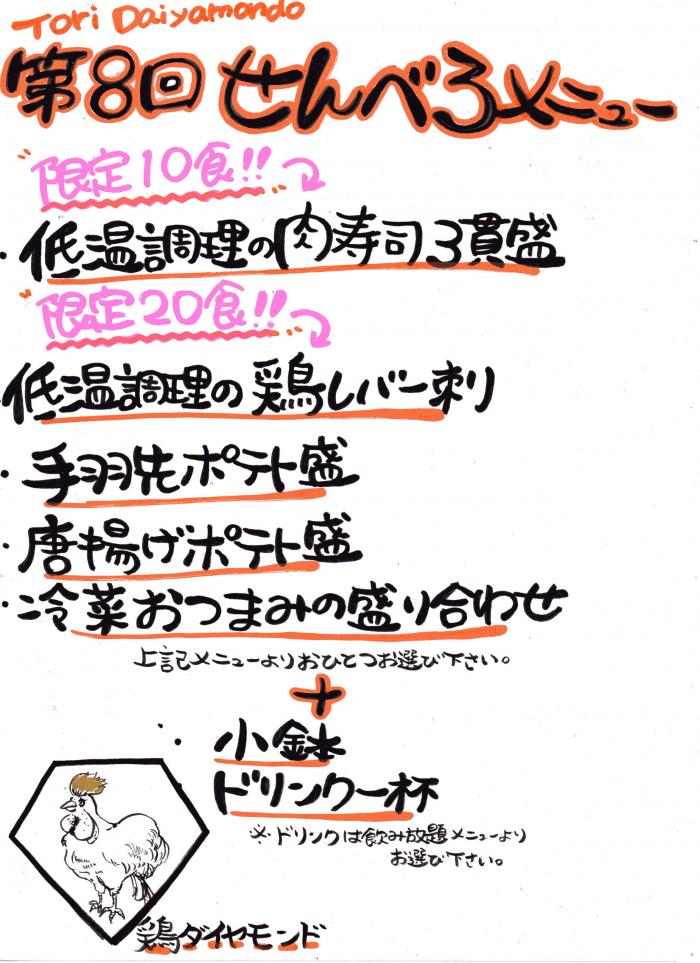 Tori Daiyamondo
第8回せんべろメニュー
"限定10食!!"
・低温調理の肉寿司3貫盛
"限定20食!!"
・低温調理の鶏レバー刺り
・手羽先ポテト盛
・唐揚げポテト盛
・冷菜おつまみの盛り合わせ
上記メニューよりおひとつお選び下さい。
+
・小鉢
ドリンク一杯
※ドリンクは飲み放題メニューより
お選び下さい。
鶏ダイヤモンド